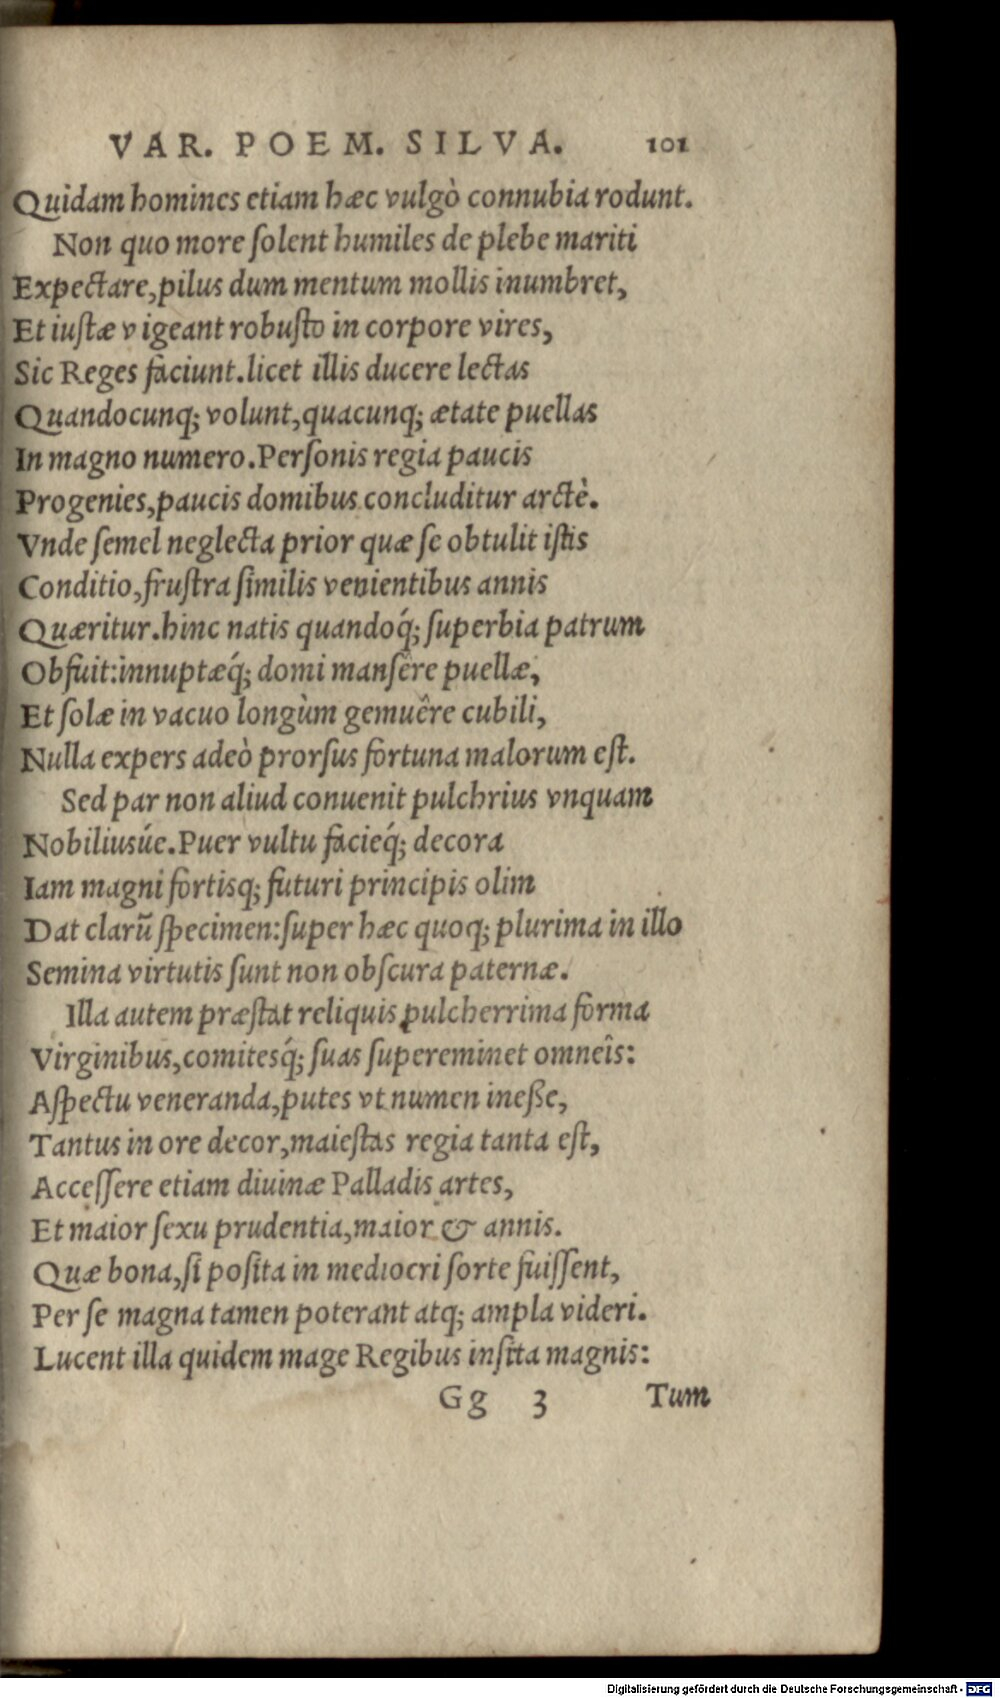 VAR. POEM. SILVA. 101
Quidam homines etiam hæc vulgò connubia rodunt.
Non quo more ſolent humiles de plebe mariti
Expectare,pilus dum mentum mollis inumbret,
Et iuſtæ vigeant robuſto in corpore vires,
Sic Reges faciunt.licet illis ducere lectas
Quandocunq; volunt,quacunq; ætate puellas
In magno numero.Perſonis regia paucis
Progenies,paucis domibus concluditur arctè.
Vnde ſemel neglecta prior quæ ſe obtulit iſtis
Conditio,fruſtra ſimilis venientibus annis
Quæritur.hinc natis quandoq́; ſuperbia patrum
Obfuit:innuptæq́; domi manſêre puellæ,
Et ſolæ in vacuo longùm gemuêre cubili,
Nulla expers adeò prorſus fortuna malorum eſt.
Sed par non aliud conuenit pulchrius vnquam
Nobiliusúe.Puer vultu facieq́; decora
Iam magni fortisq; futuri principis olim
Dat clarū ſpecimen:ſuper hæc quoq; plurima in illo
Semina virtutis ſunt non obſcura paternæ.
Illa autem præſtat reliquis pulcherrima forma
Virginibus,comitesq́; ſuas ſupereminet omneîs:
Aſpectu veneranda,putes vt numen ineſſe,
Tantus in ore decor,maieſtas regia tanta eſt,
Acceſſere etiam diuinæ Palladis artes,
Et maior ſexu prudentia,maior & annis.
Quæ bona,ſi poſita in mediocri ſorte fuiſſent,
Per ſe magna tamen poterant atq; ampla videri.
Lucent illa quidem mage Regibus inſita magnis:
Gg 3 Tum
Digitalisierung gefördert durch die Deutsche Forschungsgemeinschaft - DFG